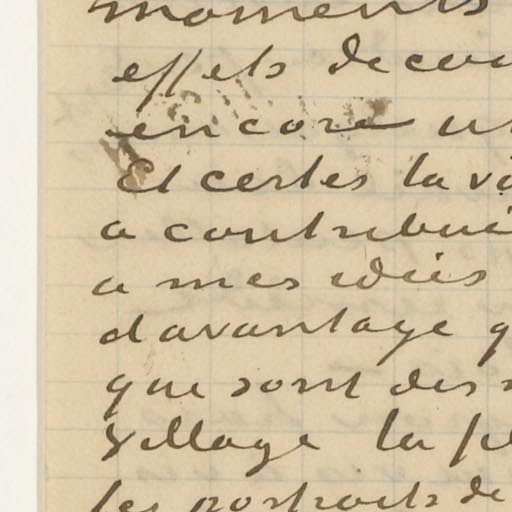 moments
effets de cou
encore un
Et certes ta vi
a contribué
a mes idées
davantage q
que sont des
village la pl
les portraits de